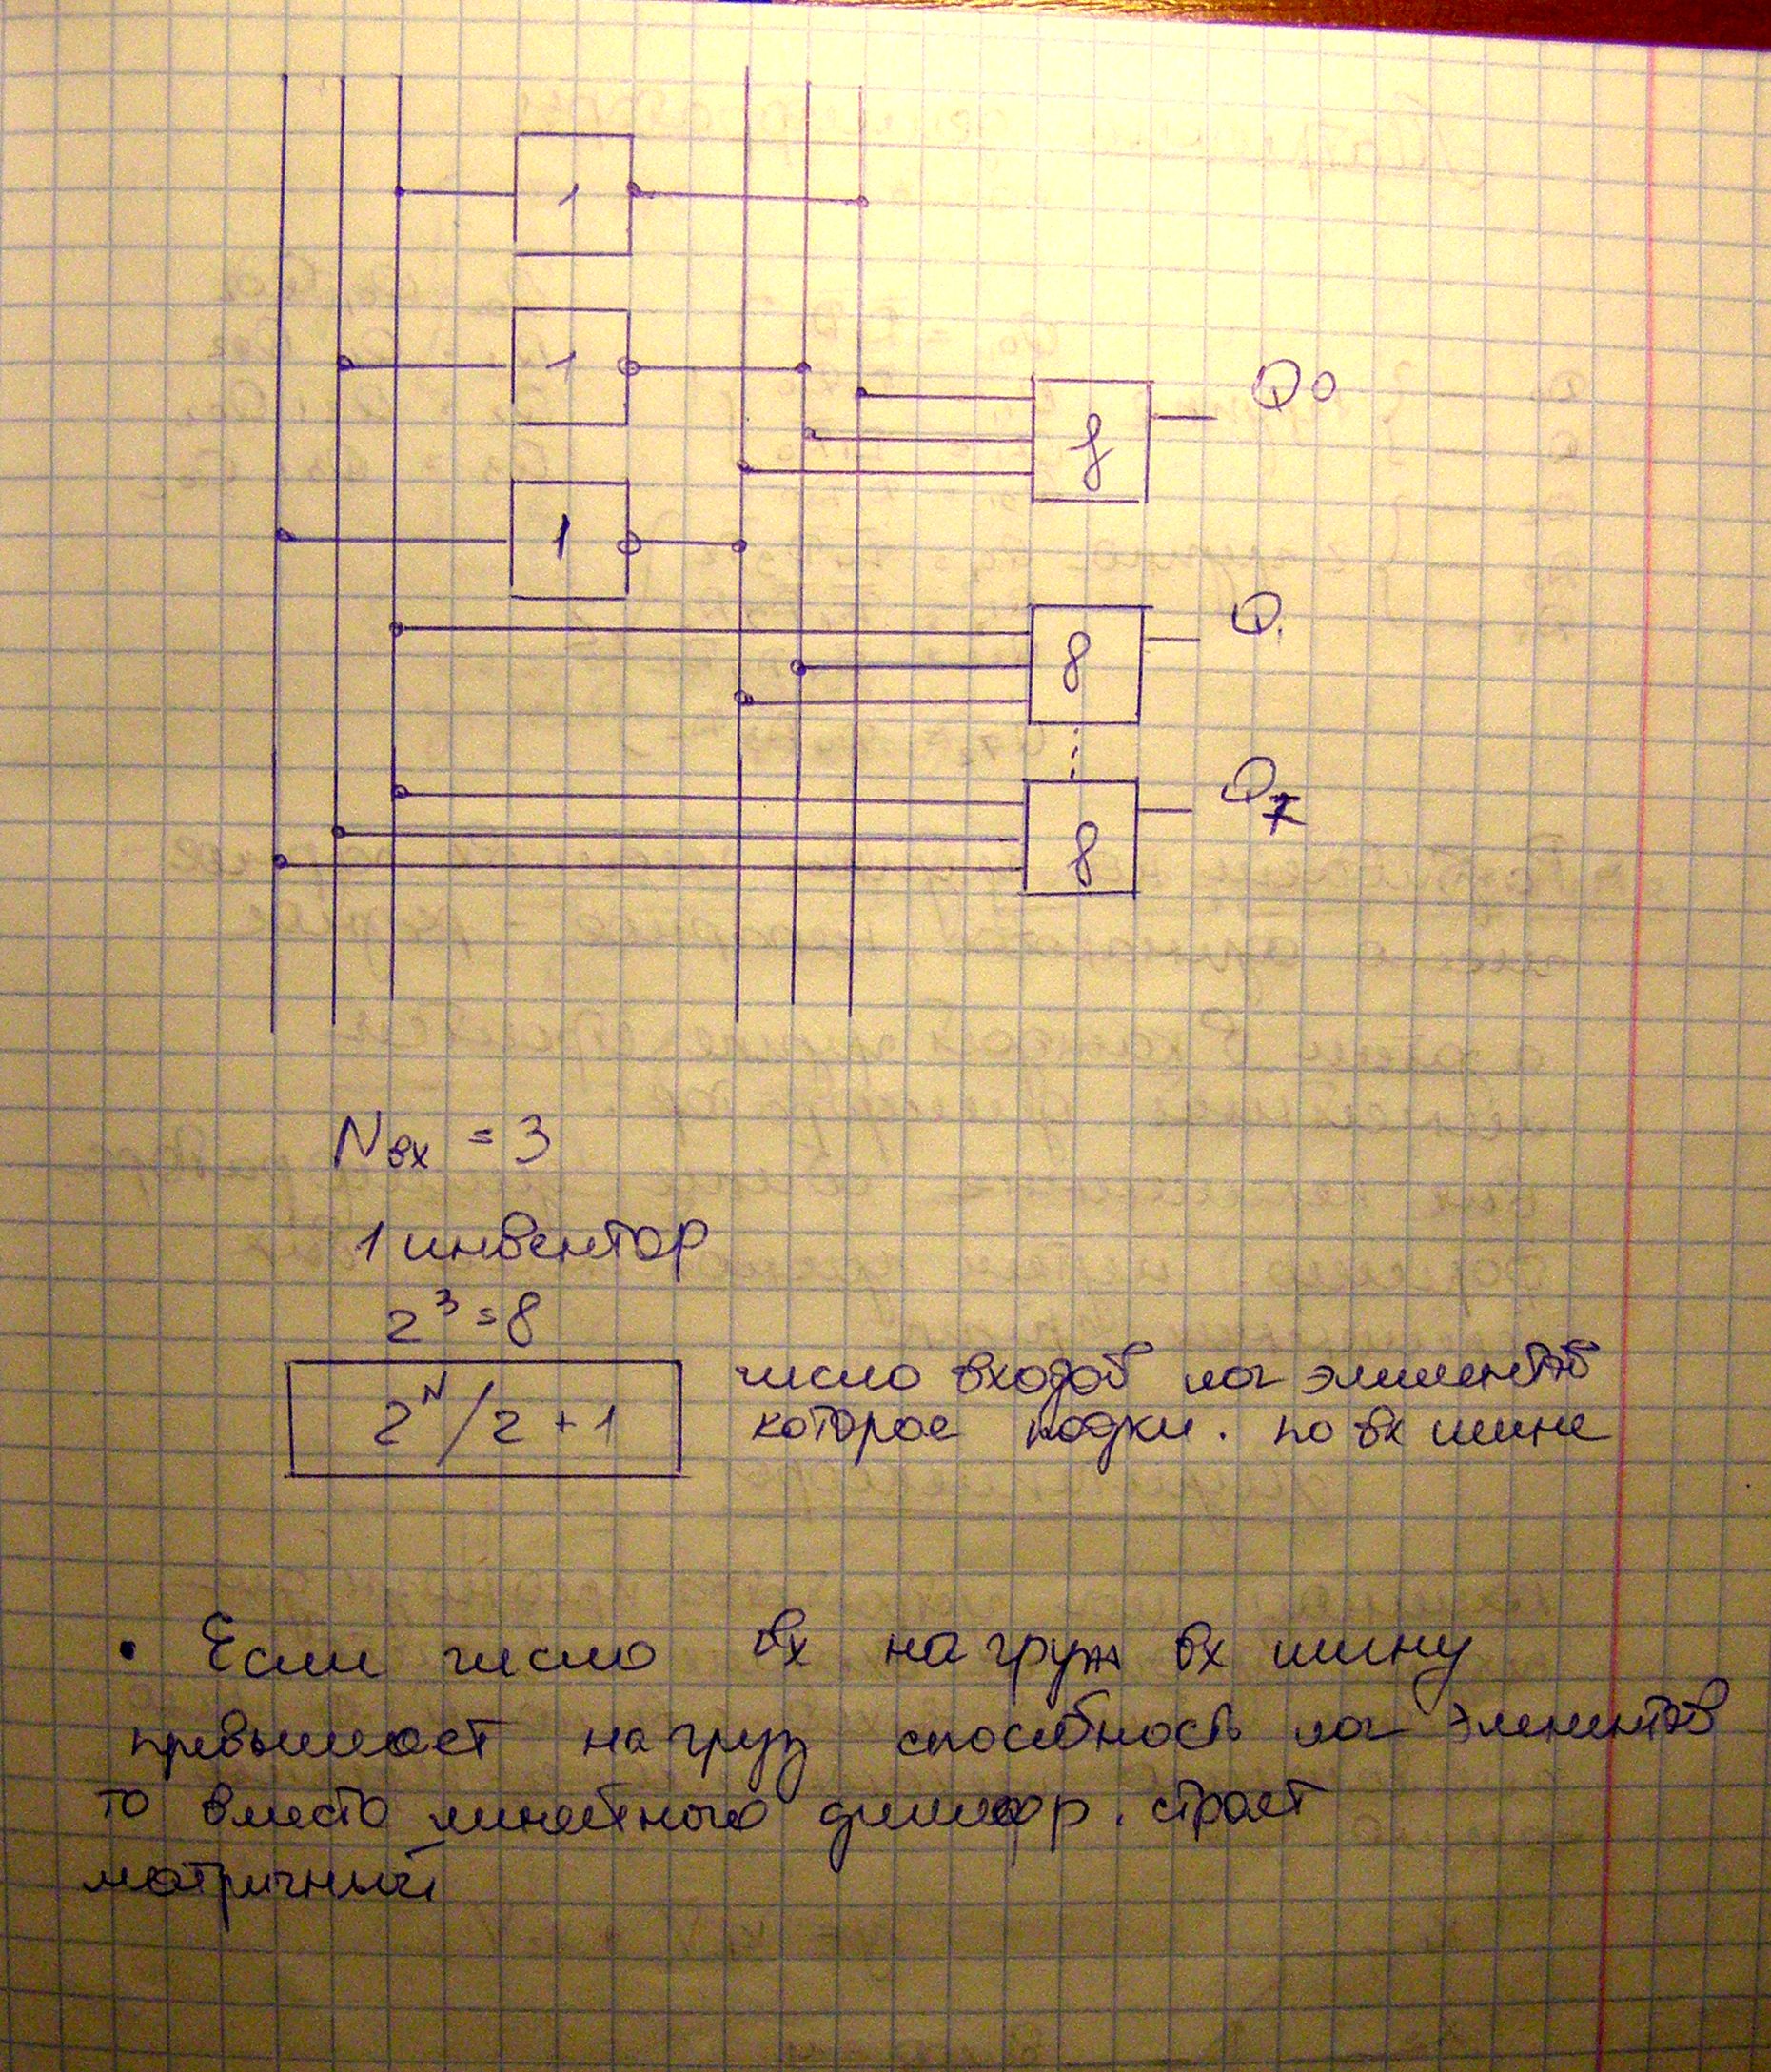 1
1
Q0
&
1
Q1
8
Q7
8
Nвх = 3
1 инвентор
2^3 = 8
2^N/2 + 1
число входов лог элементов
которое подкл. по вх шине
• Если число вх нагруж вх шину
превышает нагруз способность лог элементов
то вместо линейного дешифр. строят
матричный